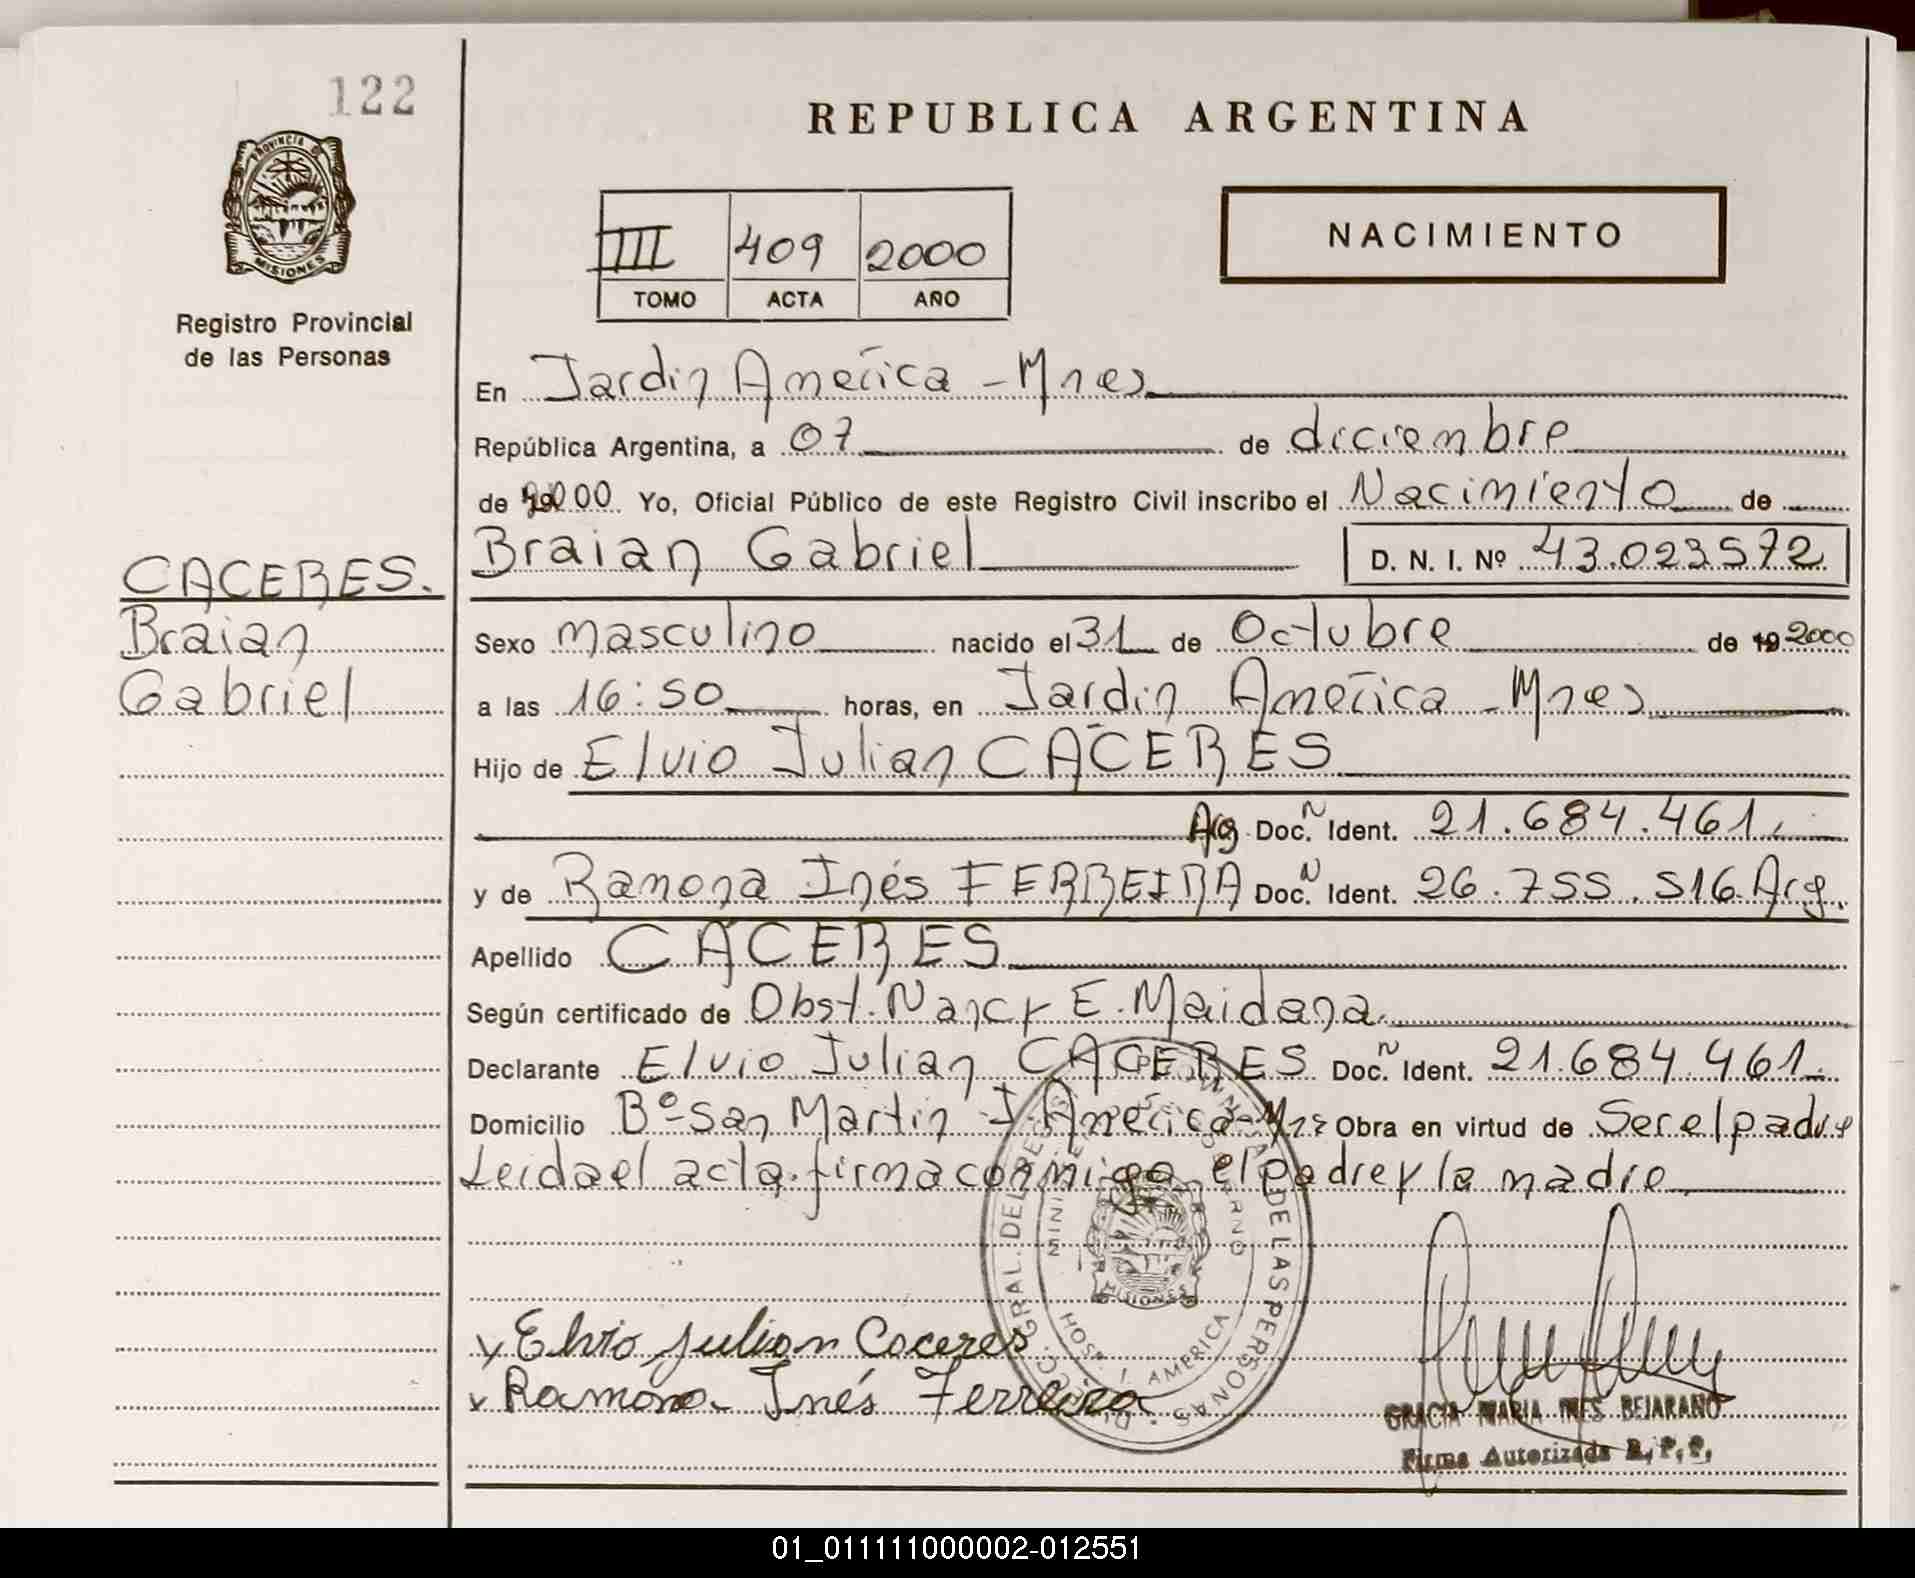 122
REPUBLICA ARGENTINA
PROVINCIA D
MISIONES
Registro Provincial
de las Personas
NACIMIENTO
III 409 2000
TOMO ACTA AÑO
En Jardin América - Mnes
República Argentina, a 07 de diciembre
de 2000 Yo, Oficial Público de este Registro Civil inscribo el Nacimiento de
Braian Gabriel D. N. I. Nº 43.023572
CACERES.
Braian
Gabriel
Sexo masculino nacido el 31 de Octubre de 19 2000
a las 16:50 horas, en Jardin América - Mnes
Hijo de Elvio Julian CACERES
Arg Doc. N Ident. 21.684.461
y de Ramona Inés FERREIRA Doc. N Ident. 26.755.516 Arg.
Apellido CACERES
Según certificado de Obst. Nancy E. Maidana
Declarante Elvio Julian CACERES Doc. N Ident. 21.684.461
Domicilio Bº San Martin J América - Mnes Obra en virtud de Ser el padre
Leida el acta firma conmigo el padre y la madre
Elvio Julian Caceres
Ramona Inés Ferreira
GRAL. DEL DE LAS PERSONAS
HOSP. J. AMERICA
MISIONES
GRACIA MARIA INES BEJARANO
Firma Autorizada R.P.P.
01_011111000002-012551